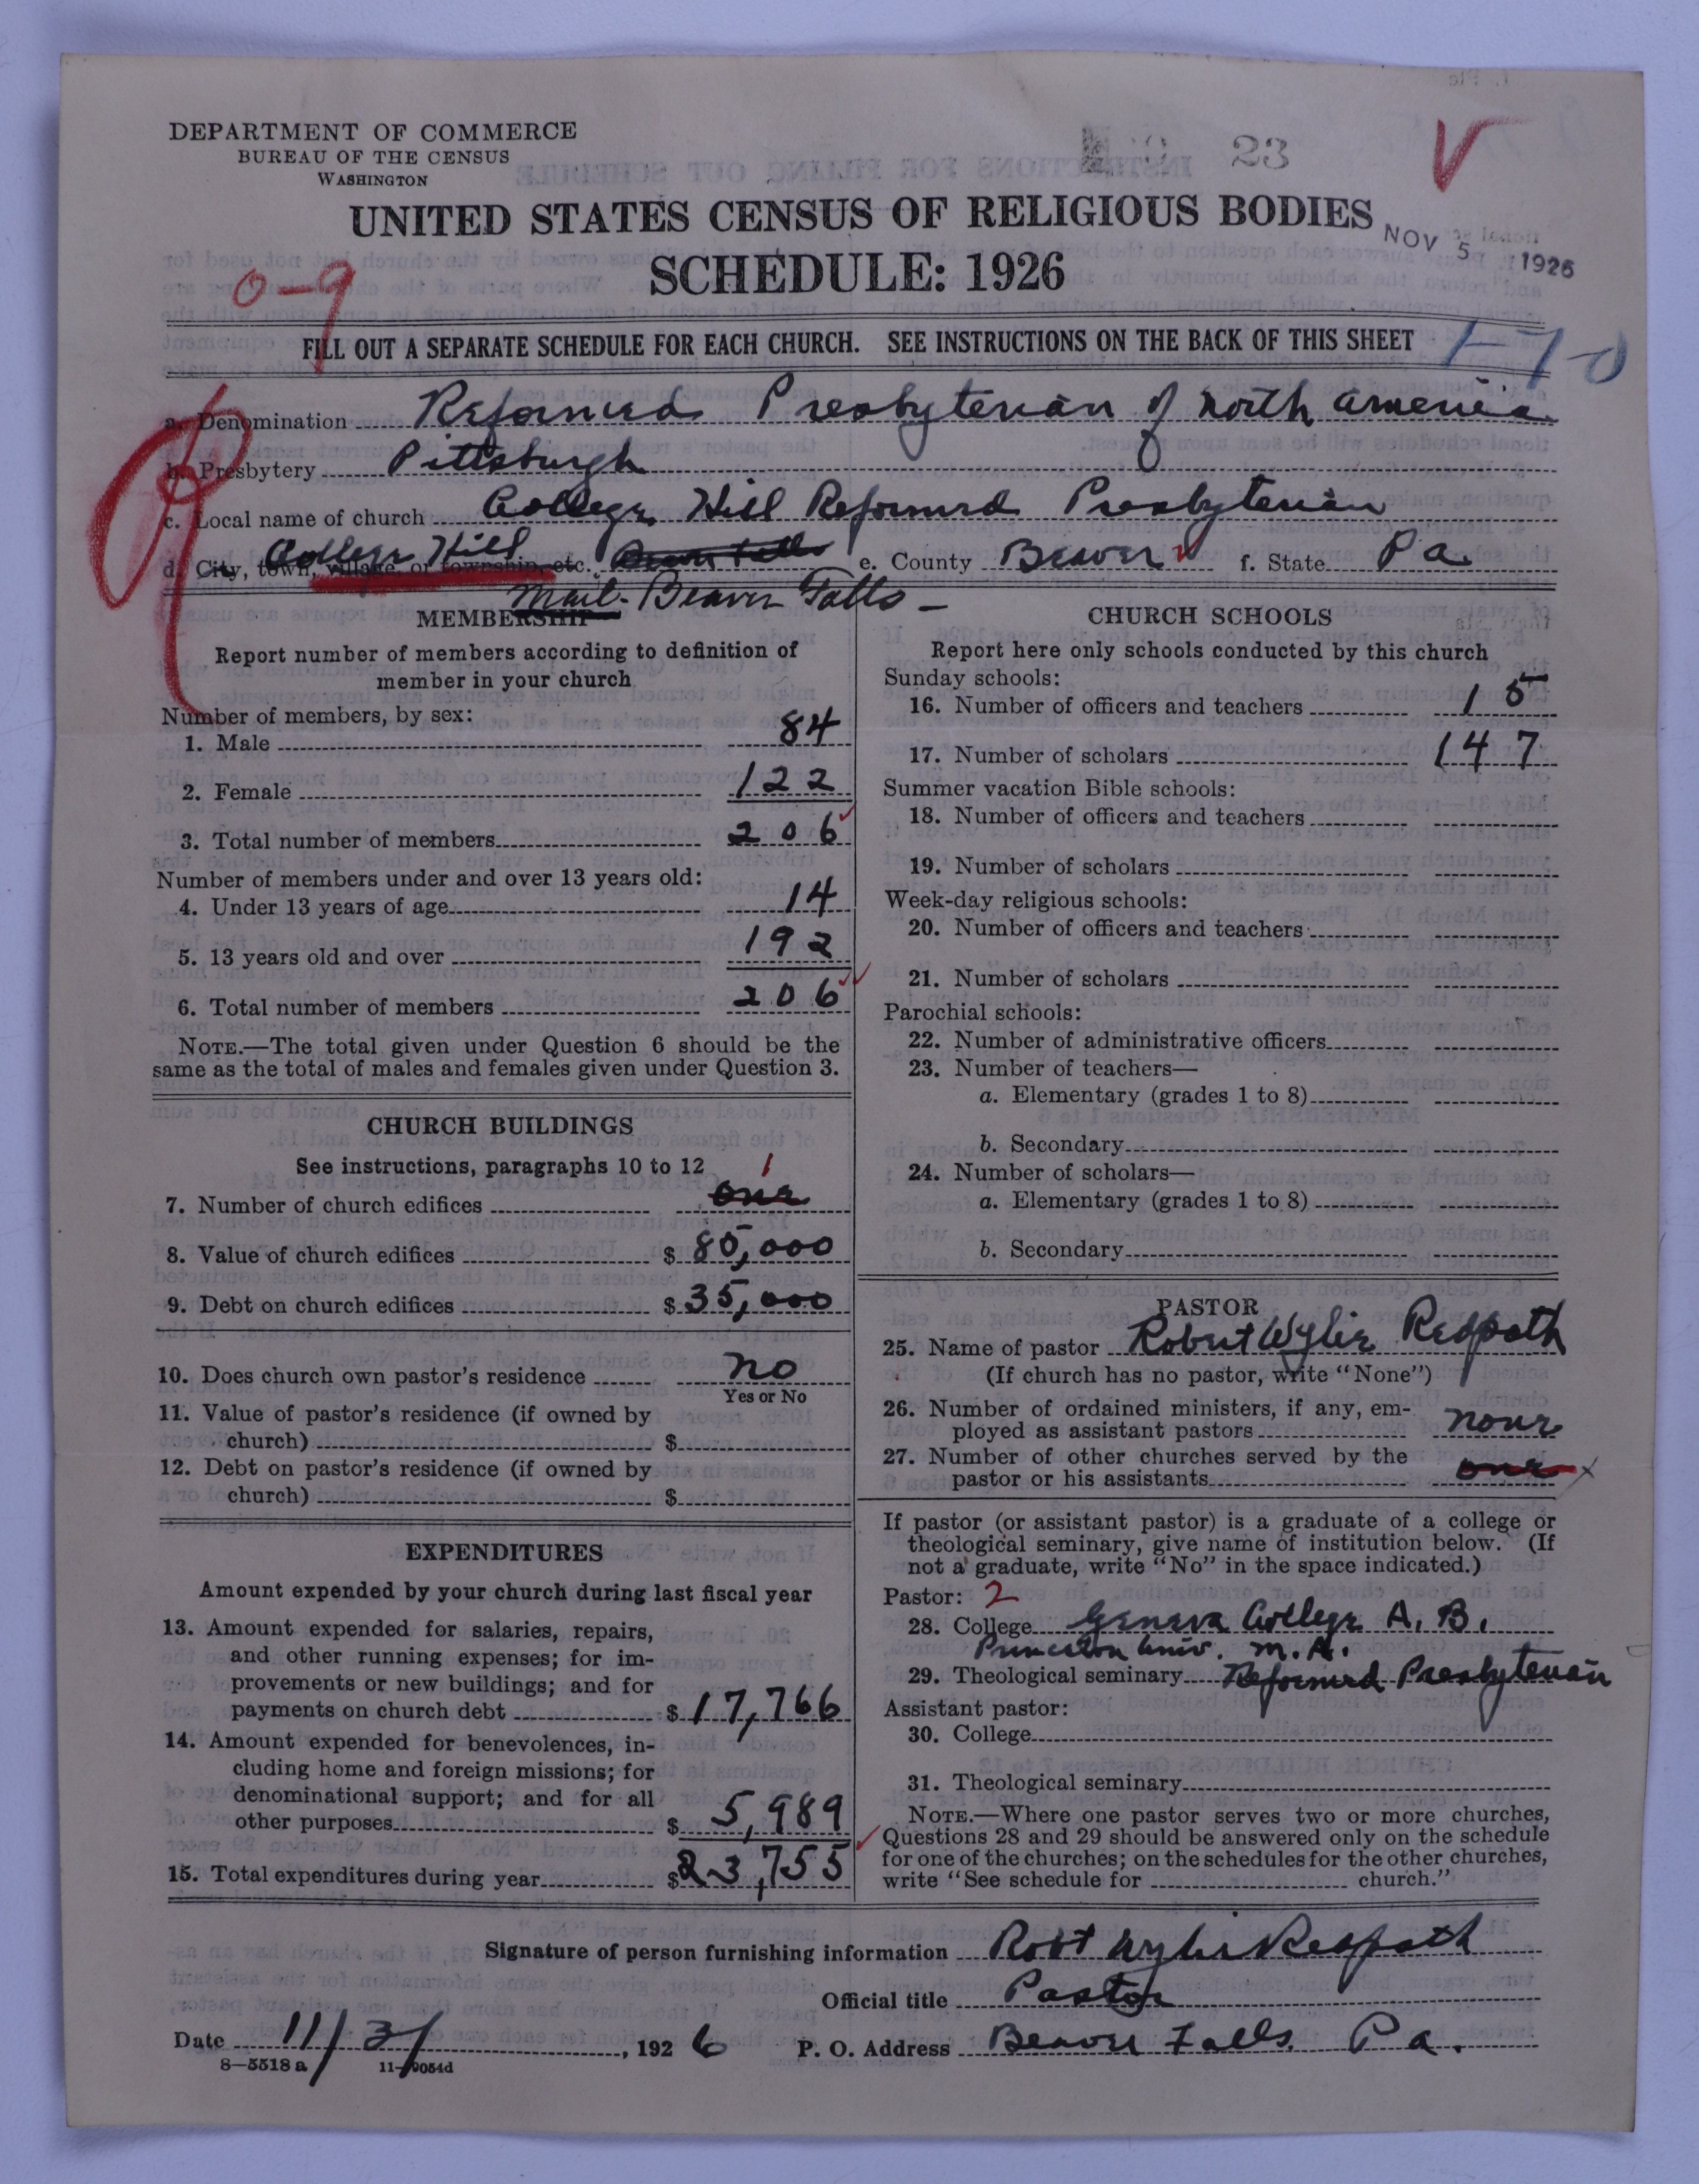 DEPARTMENT OF COMMERCE
BUREAU OF THE CENSUS
WASHINGTON
23
UNITED STATES CENSUS OF RELIGIOUS BODIES
NOV 5 1926
SCHEDULE: 1926
0-9
FILL OUT A SEPARATE SCHEDULE FOR EACH CHURCH. SEE INSTRUCTIONS ON THE BACK OF THIS SHEET
1-70
a. Denomination Reformed Presbyterian of North America
b. Presbytery Pittsburgh
c. Local name of church College Hill Reformed Presbyterian
d. City, town, village, or township, etc. College Hill Beaver Falls e. County Beaver f. State Pa.
Mail- Beaver Falls -
MEMBERSHIP
Report number of members according to definition of
member in your church
Number of members, by sex:
1. Male 84
2. Female 122
3. Total number of members 206
Number of members under and over 13 years old:
4. Under 13 years of age 14
5. 13 years old and over 192
6. Total number of members 206
NOTE.—The total given under Question 6 should be the
same as the total of males and females given under Question 3.
CHURCH BUILDINGS
See instructions, paragraphs 10 to 12
1
7. Number of church edifices one
8. Value of church edifices $ 85,000
9. Debt on church edifices $ 35,000
10. Does church own pastor's residence no
Yes or No
11. Value of pastor's residence (if owned by
church) $
12. Debt on pastor's residence (if owned by
church) $
EXPENDITURES
Amount expended by your church during last fiscal year
13. Amount expended for salaries, repairs,
and other running expenses; for im-
provements or new buildings; and for
payments on church debt $ 17,766
14. Amount expended for benevolences, in-
cluding home and foreign missions; for
denominational support; and for all
other purposes $ 5,989
15. Total expenditures during year $ 23,755
CHURCH SCHOOLS
Report here only schools conducted by this church
Sunday schools:
16. Number of officers and teachers 15
17. Number of scholars 147
Summer vacation Bible schools:
18. Number of officers and teachers
19. Number of scholars
Week-day religious schools:
20. Number of officers and teachers
21. Number of scholars
Parochial schools:
22. Number of administrative officers
23. Number of teachers—
a. Elementary (grades 1 to 8)
b. Secondary
24. Number of scholars—
a. Elementary (grades 1 to 8)
b. Secondary
PASTOR
25. Name of pastor Robert Wylie Redpath
(If church has no pastor, write "None")
26. Number of ordained ministers, if any, em-
ployed as assistant pastors none
27. Number of other churches served by the
pastor or his assistants one
If pastor (or assistant pastor) is a graduate of a college or
theological seminary, give name of institution below. (If
not a graduate, write "No" in the space indicated.)
Pastor: 2
28. College Geneva College A. B.
Princeton Univ. M. A.
29. Theological seminary Reformed Presbyterian
Assistant pastor:
30. College
31. Theological seminary
NOTE.—Where one pastor serves two or more churches,
Questions 28 and 29 should be answered only on the schedule
for one of the churches; on the schedules for the other churches,
write "See schedule for church."
Signature of person furnishing information Robt Wylie Redpath
Official title Pastor
Date 11/3/, 1926 P. O. Address Beaver Falls, Pa.
8—5518 a 11-9054d